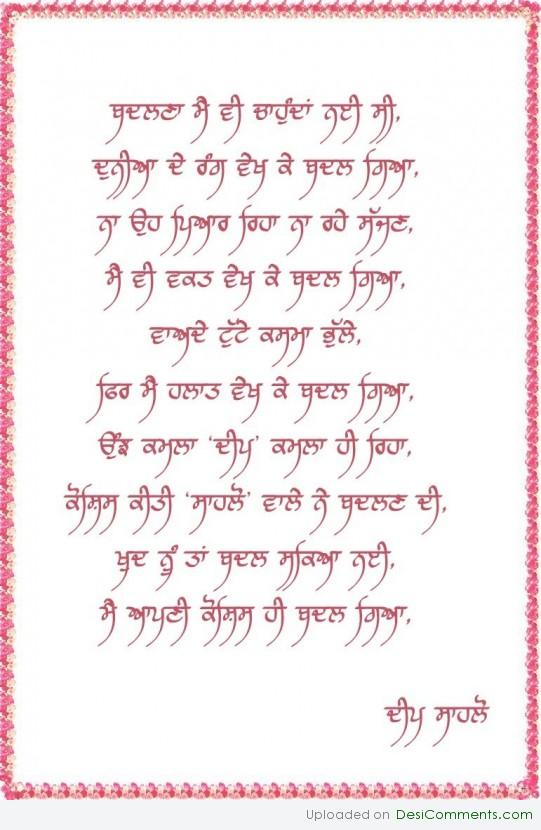 ਬਦਲਣਾ ਮੈ ਵੀ ਚਾਹੁੰਦਾਂ ਨਈ ਸੀ,
ਦੁਨੀਆ ਦੇ ਰੰਗ ਵੇਖ ਕੇ ਬਦਲ ਗਿਆ,
ਨਾ ਉਹ ਪਿਆਰ ਰਿਹਾ ਨਾ ਰਹੇ ਸੱਜਣ,
ਮੈ ਵੀ ਵਕਤ ਵੇਖ ਕੇ ਬਦਲ ਗਿਆ,
ਵਾਅਦੇ ਟੁੱਟੇ ਕਸਮਾ ਭੁੱਲੇ,
ਫਿਰ ਮੈ ਹਲਾਤ ਵੇਖ ਕੇ ਬਦਲ ਗਿਆ,
ਉਂਝ ਕਮਲਾ ‘ਦੀਪ’ ਕਮਲਾ ਹੀ ਰਿਹਾ,
ਕੋਸ਼ਿਸ ਕੀਤੀ ‘ਸਾਹਲੋਂ’ ਵਾਲੇ ਨੇ ਬਦਲਣ ਦੀ,
ਖੁਦ ਨੂੰ ਤਾਂ ਬਦਲ ਸਕਿਆ ਨਈ,
ਮੈ ਆਪਣੀ ਕੋਸ਼ਿਸ ਹੀ ਬਦਲ ਗਿਆ,
ਦੀਪ ਸਾਹਲੋਂ
Uploaded on DesiComments.com